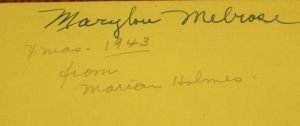 Marylou Melrose
Xmas - 1943
from
Marion Holmes.